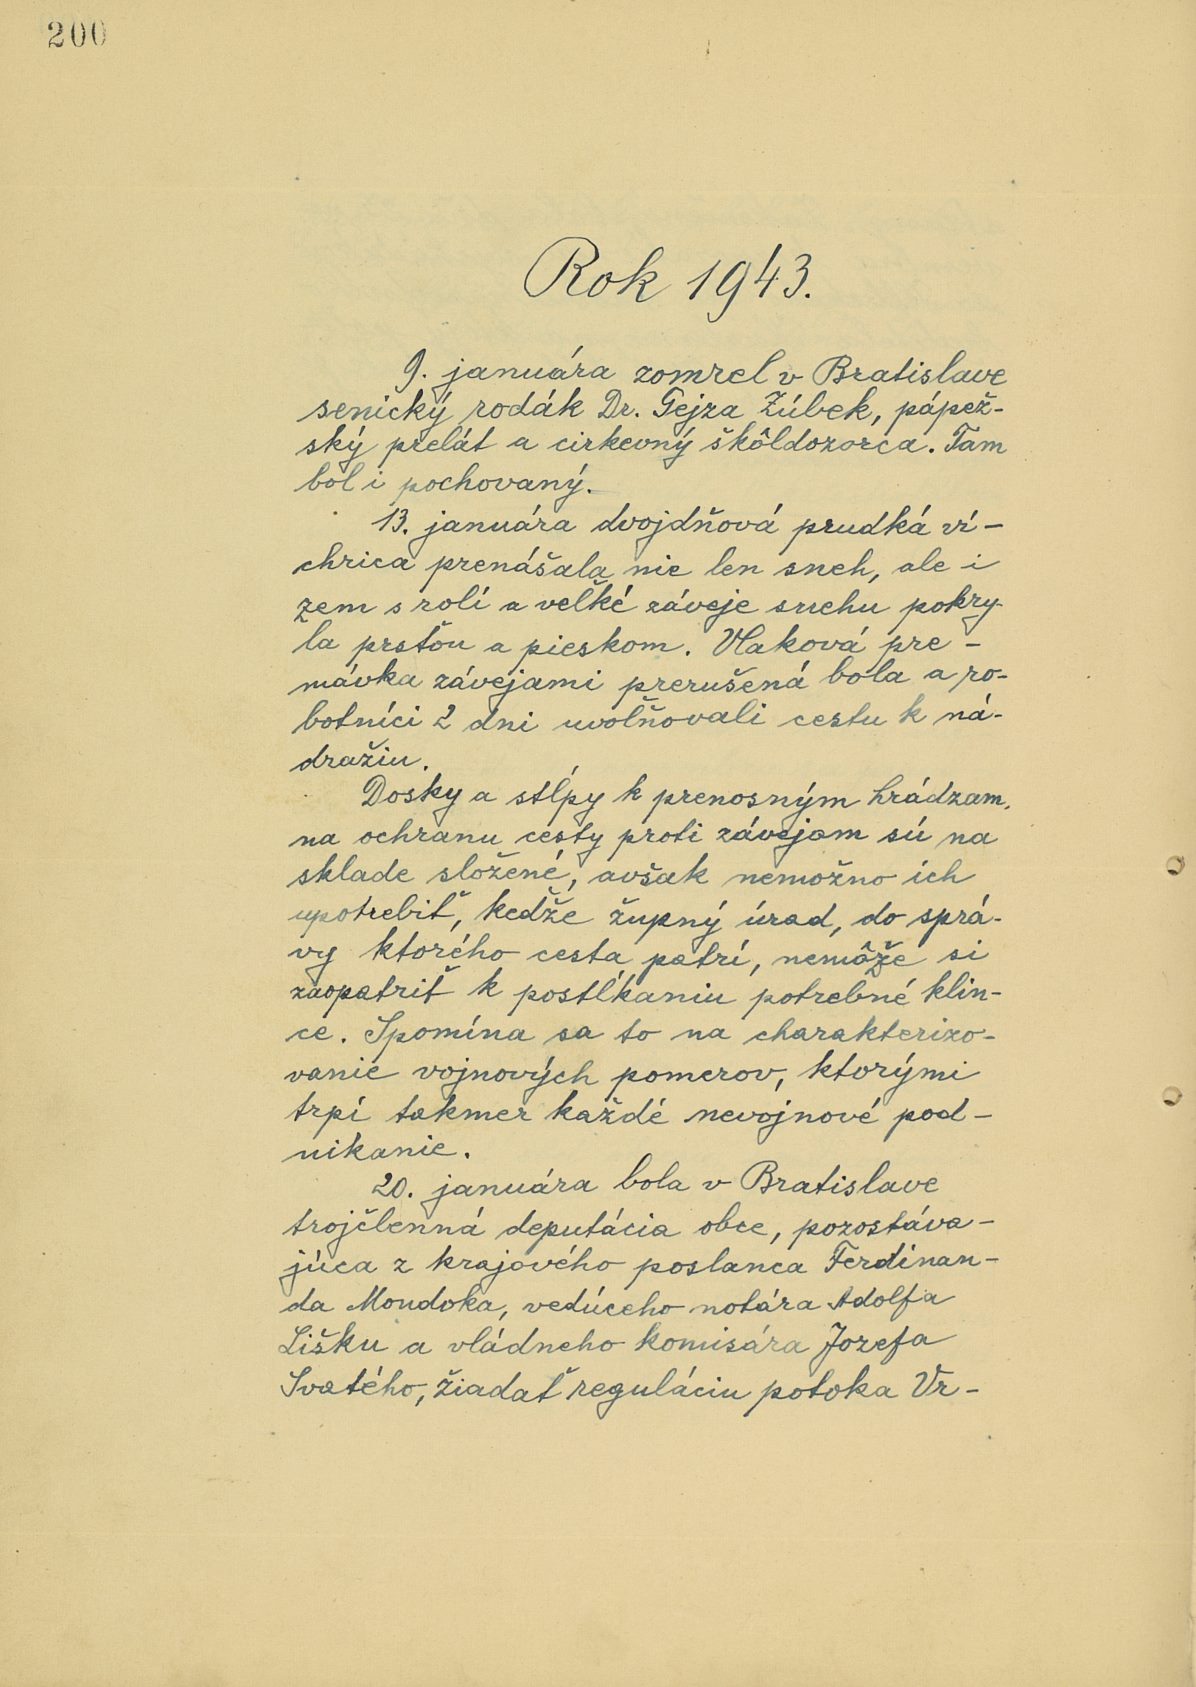 200
Rok 1943.
9. januára zomrel v Bratislave
senický rodák Dr. Gejza Zúbek, pápež-
ský prelát a cirkevný škôldozorca. Tam
bol i pochovaný.
13. januára dvojdňová prudká ví-
chrica prenášala nie len sneh, ale i
zem s rolí a veľké záveje snehu pokry-
la prsťou a pieskom. Vlaková pre-
mávka závejami prerušená bola a ro-
botníci 2 dni uvolňovali cestu k ná-
dražiu.
Dosky a stĺpy k prenosným hrádzam,
na ochranu cesty proti závejam sú na
sklade složené, avšak nemožno ich
upotrebiť, kedže župný úrad, do sprá-
vy ktorého cesta patrí, nemôže si
zaopatriť k postĺkaniu potrebné klin-
ce. Spomína sa to na charakterizo-
vanie vojnových pomerov, ktorými
trpí takmer každé nevojnové pod-
nikanie.
20. januára bola v Bratislave
trojčlenná deputácia obce, pozostáva-
júca z krajového poslanca Ferdinan-
da Mondoka, vedúceho notára Adolfa
Lišku a vládneho komisára Jozefa
Svatého, žiadať reguláciu potoka Vr-